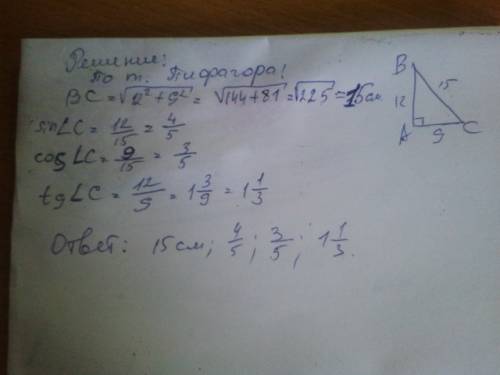 Решение:
По т. Пифагора:
BC = √12² + 9² = √144 + 81 = √225 = 15 см.
sin∠C = 12/15 = 4/5
cos∠C = 9/15 = 3/5
tg∠C = 12/9 = 1 3/9 = 1 1/3
Ответ: 15 см; 4/5; 3/5; 1 1/3.
B
15
12
A
9
C